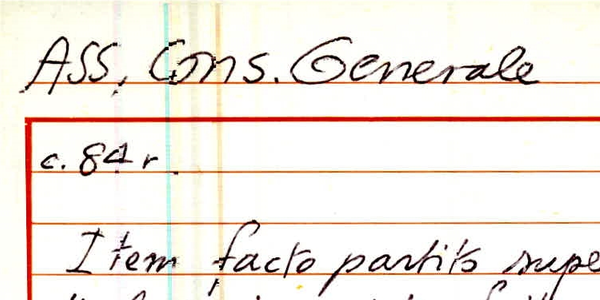 ASS, Cons. Generale
c. 84 r.
Item facto partito supe